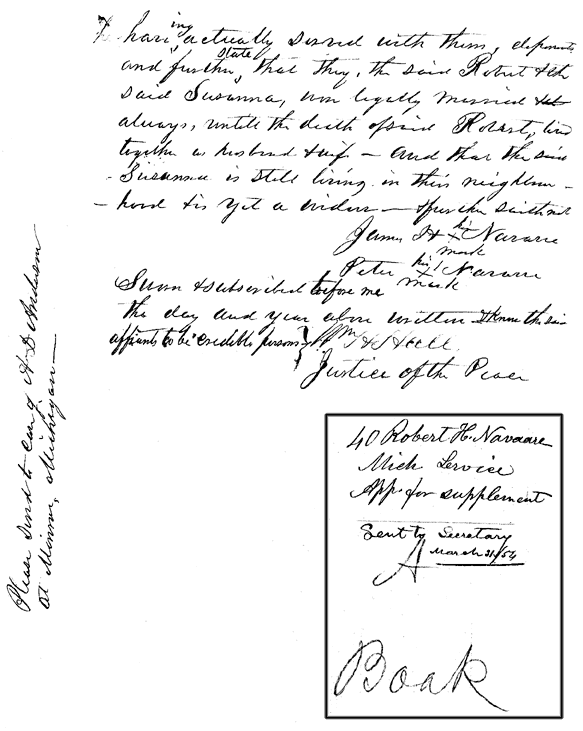 having actually served with them, deponents
and further state, that they, the said Robert & the
said Susanna, were legally married &
always, untill the death of said Robert, lived
together as husband & wife — and that the said
Susanna is still living in this neighbor-
-hood & is yet a widow — & further saith not
James H his X mark Navarre
Peter his X mark Navarre
Sworn & subscribed before me
the day and year above written & I know the said
affiants to be credible persons
Justice of the Peace
Please send to care of A D Anderson
at Monroe, Michigan —
40 Robert H. Navaare
Mich Service
App. for supplement
Sent to Secretary
March 31/54
A
Boak